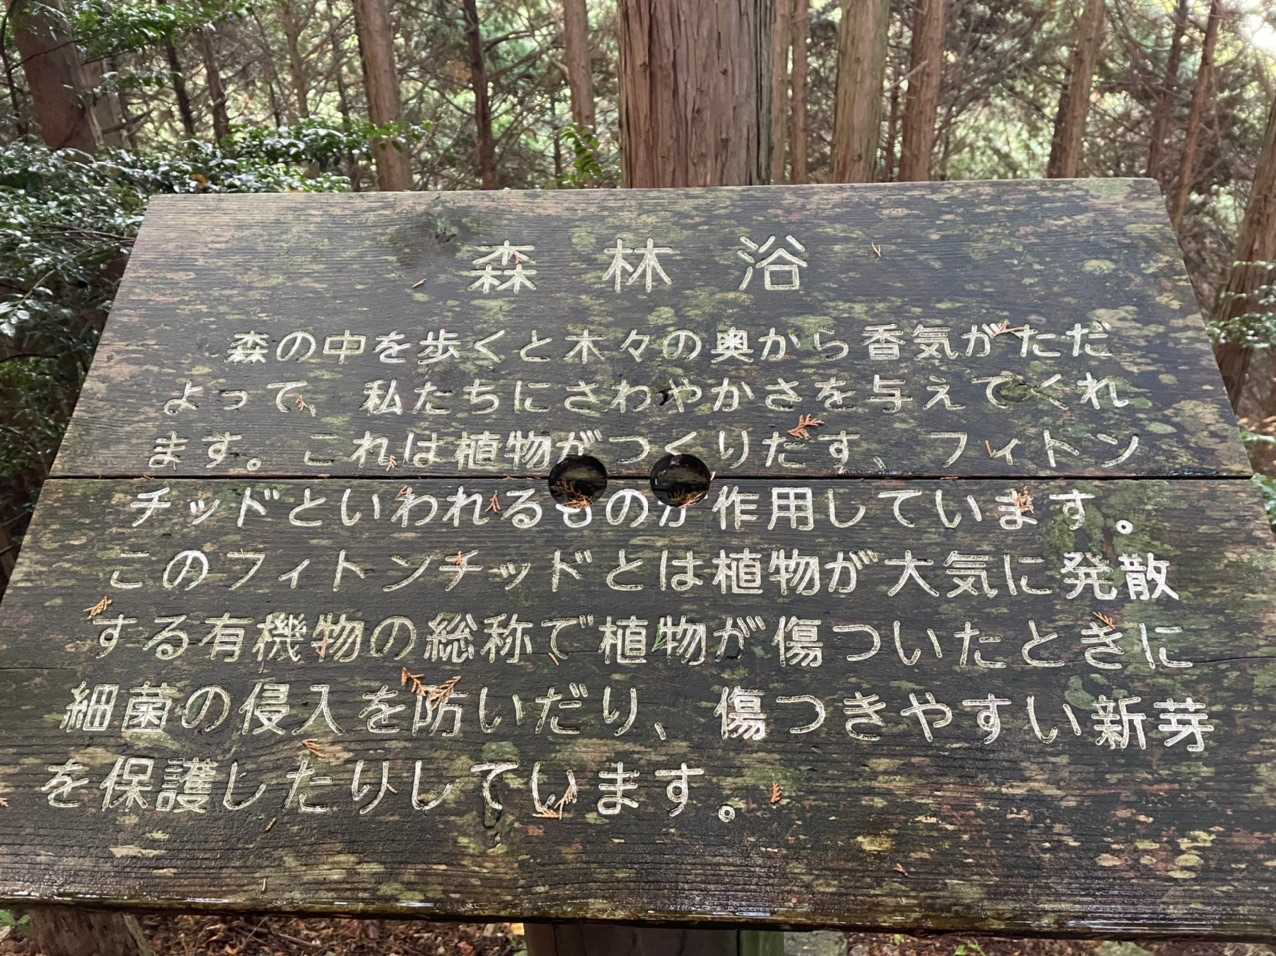 森林浴
森の中を歩くと木々の奥から香気がただ
よって、私たちにさわやかさを与えてくれ
ます。これは植物がつくりだす、フィトン
チッドといわれるものが作用しています。
このフィトンチッドとは植物が大気に発散
する有機物の総称で植物が傷ついたときに
細菌の侵入を防いだり、傷つきやすい新芽
を保護したりしています。